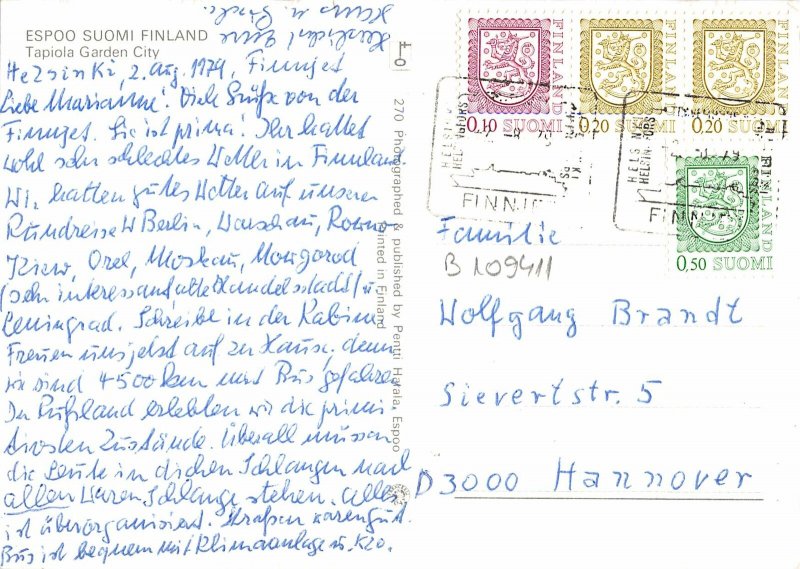 ESPOO SUOMI FINLAND
Tapiola Garden City
Helsinki, 2. Aug. 1979, Finnjet
Liebe Marianne! Viele Grüße von der
Finnjet. Sie ist prima! Ihr hattet
wohl sehr schlechtes Wetter in Finnland.
Wir hatten gutes Wetter auf unserer
Rundreise W Berlin, Warschau, Rowno
Kiew, Orel, Moskau, Nowgorod
(sehr interessant alte Handelsstadt) u.
Leningrad. Schreibe in der Kabine
Freuen uns jetzt auf zu Hause, denn
wir sind 4500 km mit Bus gefahren
In Rußland erlebten wir die primi
tivsten Zustände. Überall müssen
die Leute in dichen Schlangen nach
allen Waren Schlange stehen. Alles
ist überorganisiert. Straßen waren gut.
Bus ist bequem mit Klimaanlage u. Klo.
Herzlichst Eure
Hans u.
270 Photographed & published by Pentti Harala, Espoo
Printed in Finland
FINLAND
0,10 SUOMI
FINLAND
0,20 SUOMI
FINLAND
0,20 SUOMI
FINLAND
0,50 SUOMI
HELSINKI
HELSINGFORS
FINNJET
HELSINKI
HELSINGFORS
FINNJET
Familie
B 109411
Wolfgang Brandt
Sievertstr. 5
D 3000 Hannover